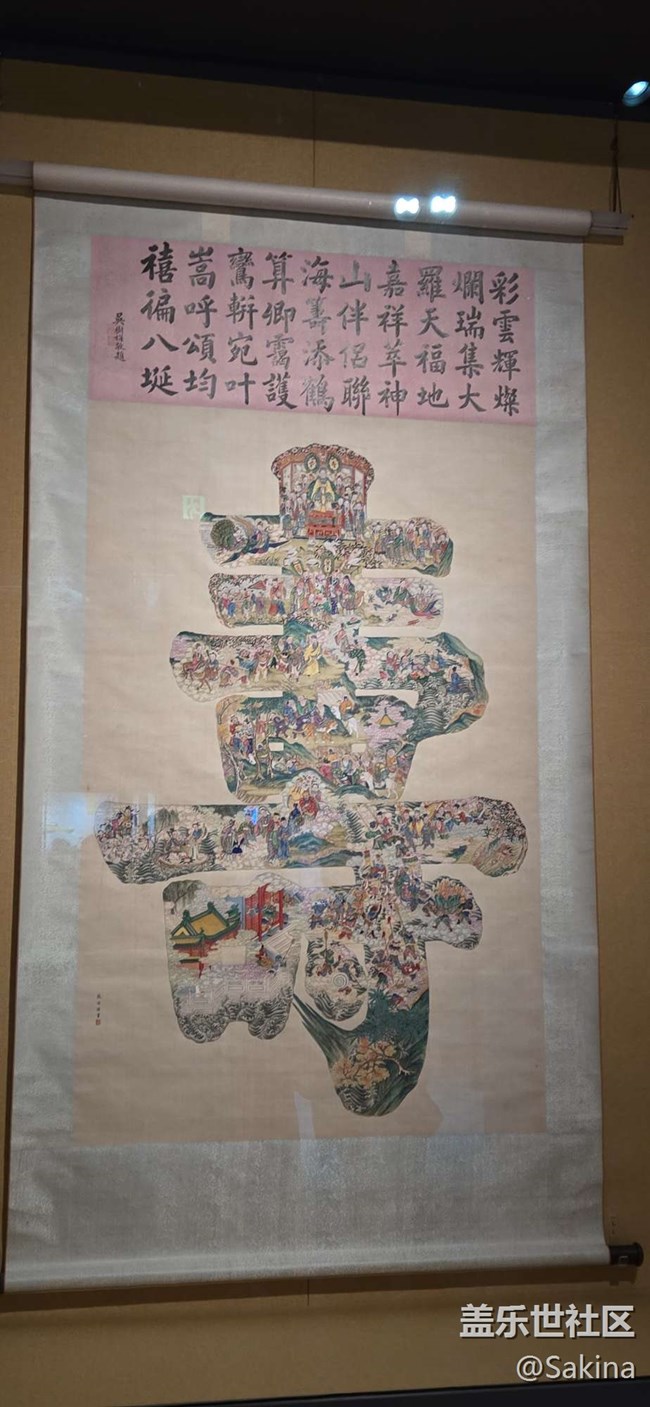 彩雲輝燦
爛瑞集大
羅天福地
嘉祥萃神
山伴侶聯
海籌添鶴
算卿靄護
鸞輧宛叶
嵩呼頌均
禧徧八埏
吳樹梅敬題
壽
盖乐世社区
@Sakina